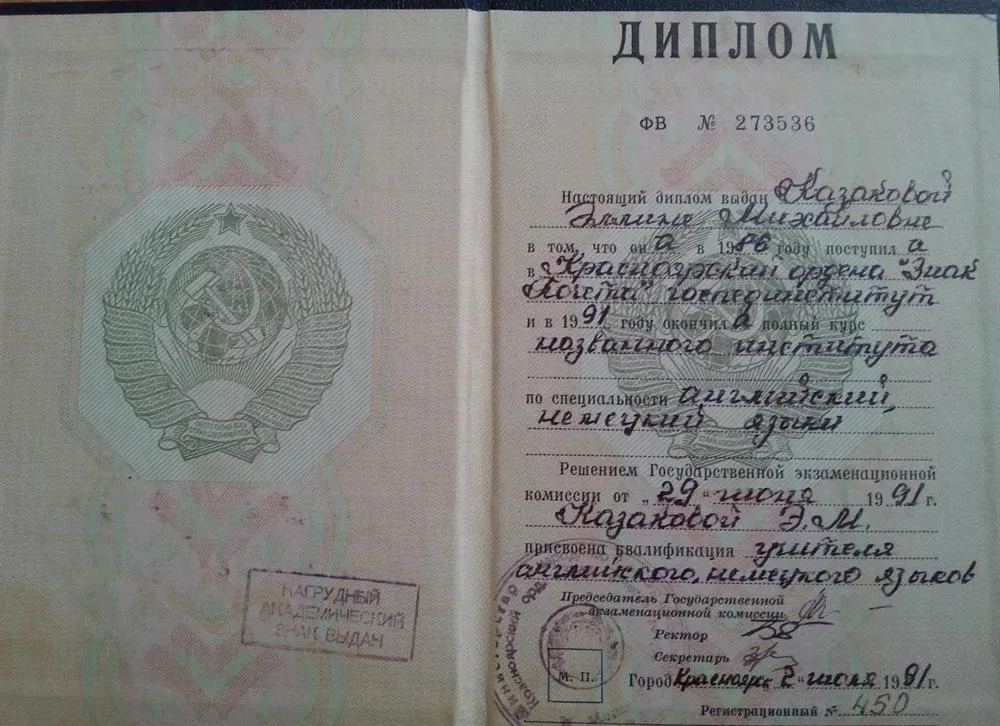 ДИПЛОМ
ФВ № 273536
Настоящий диплом выдан Казаковой
Эллине Михайловне
в том, что он а в 1986 году поступил а
в Красноярский ордена "Знак
Почёта" госпединститут
и в 1991 году окончил а полный курс
названного института
по специальности английский,
немецкий языки
Решением Государственной экзаменационной
комиссии от „29“ июня 1991 г.
Казаковой Э.М.
присвоена квалификация учителя
английского, немецкого языков
Председатель Государственной
экзаменационной комиссии
Ректор
Секретарь
М. П.
Город Красноярск 2 " июля 1991 г.
Регистрационный № 450
НАГРУДНЫЙ
АКАДЕМИЧЕСКИЙ
ЗНАК ВЫДАН